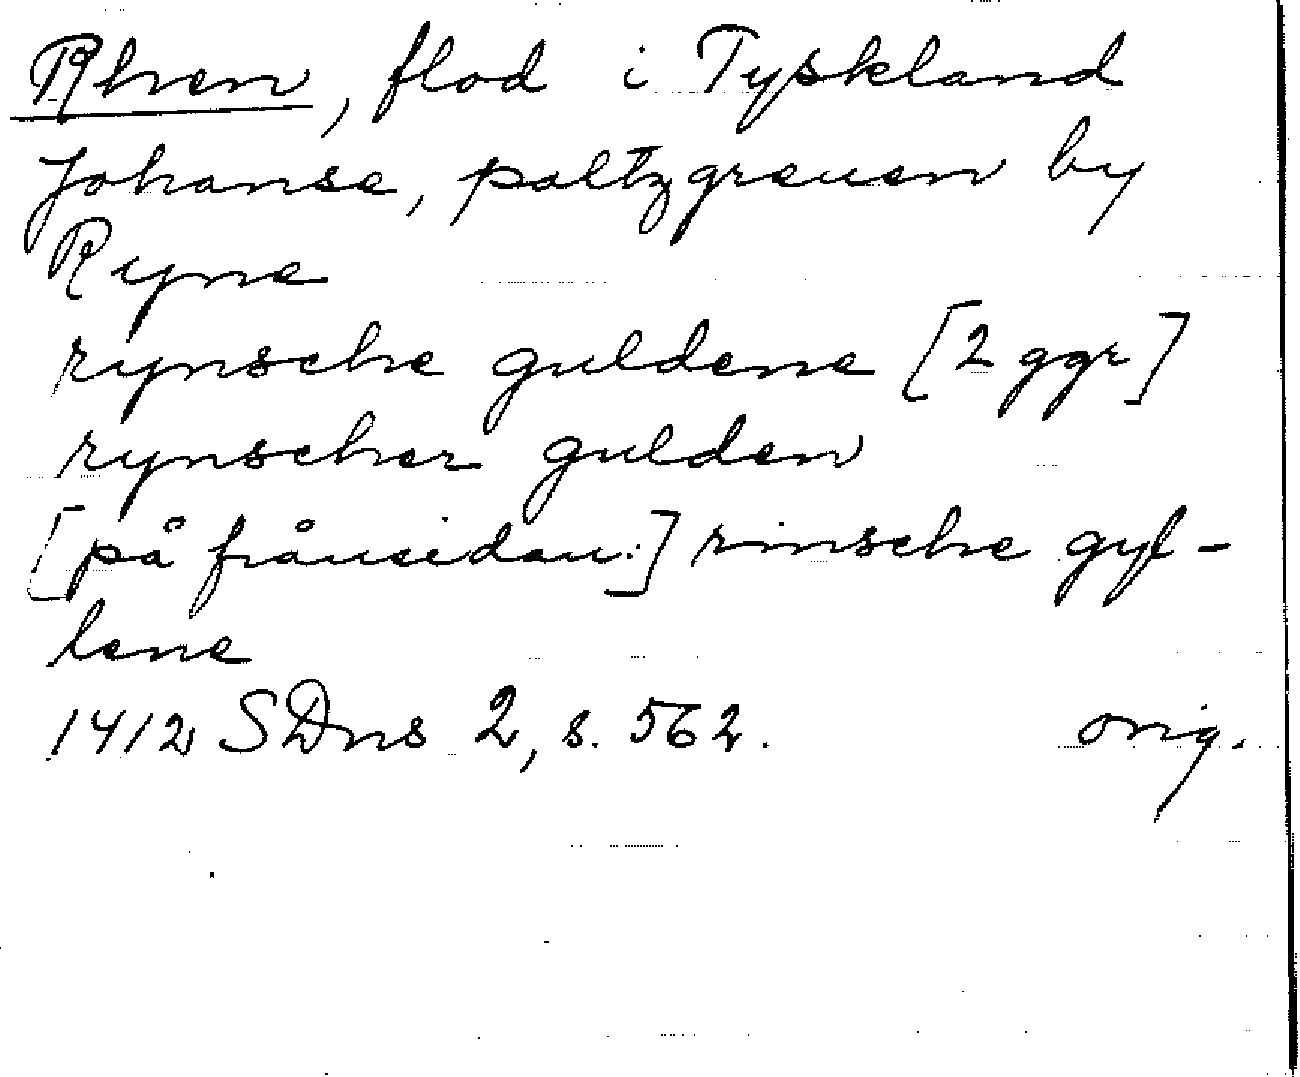 Rhen, flod i Tyskland
Johanse, paltzgreuen by
Ryne
rynsche guldene [2 ggr]
rynscher gulden
[på frånsidan:] rinsche gyl-
lene
1412 SDns 2, s. 562. orig.